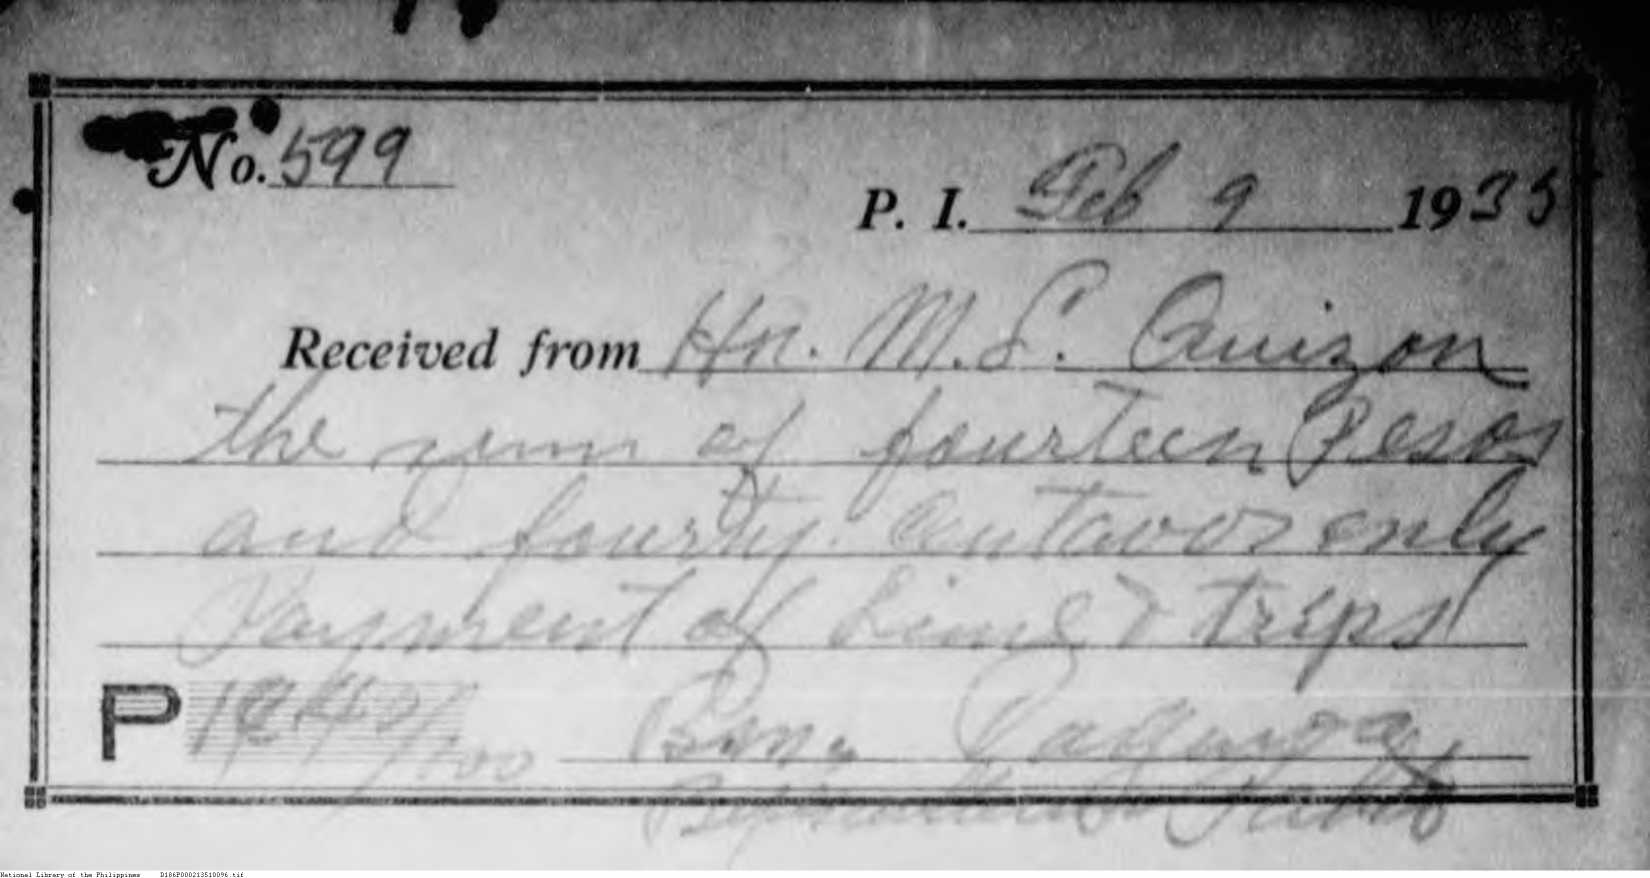 No. 599
P. I. Feb 9 1935
Received from Hn. M. S. Cuizon
the sum of fourteen Pesos
and fourty centavos only
Payment of & trips
P 14 40/100 Bon.
National Library of the Philippines D186P000213510096.tif